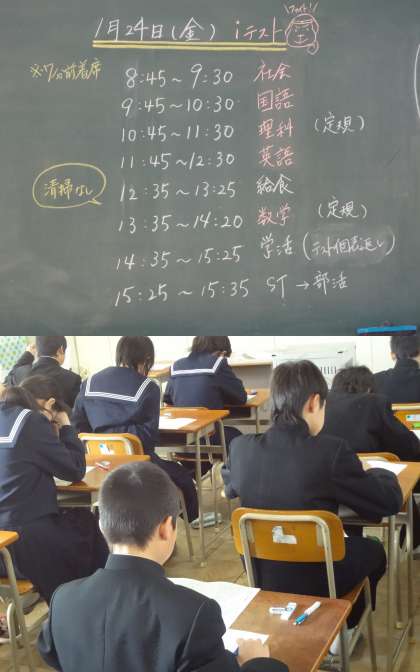 1月24日(金) iテスト ファイト!
※7分前着席
8:45～9:30 社会
9:45～10:30 国語
10:45～11:30 理科 (定規)
11:45～12:30 英語
清掃なし
12:35～13:25 給食
13:35～14:20 数学 (定規)
14:35～15:25 学活 (テスト個表返し)
15:25～15:35 ST→部活